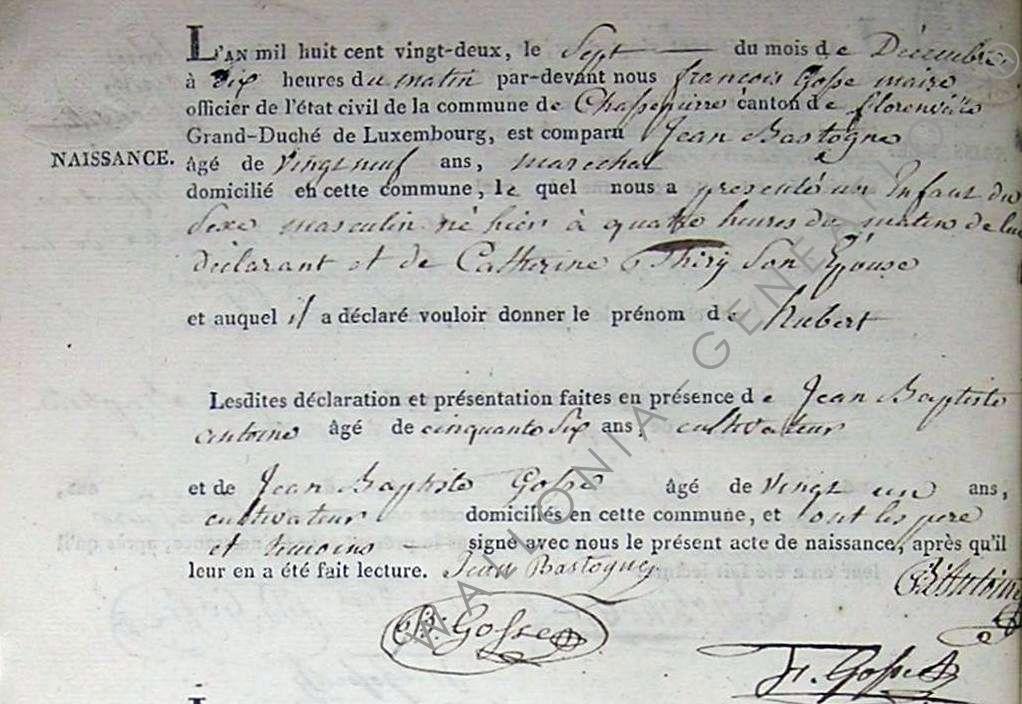 L'AN mil huit cent vingt-deux, le Sept du mois de Décembre
à dix heures du matin par-devant nous françois Gosse maire
officier de l'état civil de la commune de Chassepierre canton de florenville
Grand-Duché de Luxembourg, est comparu Jean Bastogne
NAISSANCE. âgé de vingt neuf ans, marechal
domicilié en cette commune, le quel nous a presenté un Enfant du
Sexe masculin né hier à quatre heures du matin de lui
déclarant et de Catherine Thiry Son Epouse
et auquel il a déclaré vouloir donner le prénom de Hubert
Lesdites déclaration et présentation faites en présence de Jean Baptiste
antoine âgé de cinquante Six ans, cultivateur
et de Jean Baptiste Gosse âgé de vingt un ans,
cultivateur domiciliés en cette commune, et ont les pere
et temoins signé avec nous le présent acte de naissance, après qu'il
leur en a été fait lecture. Jean Bastogne
JB Antoine
JB. Gosse
fr. Gosse
WALLONIA GENEALO